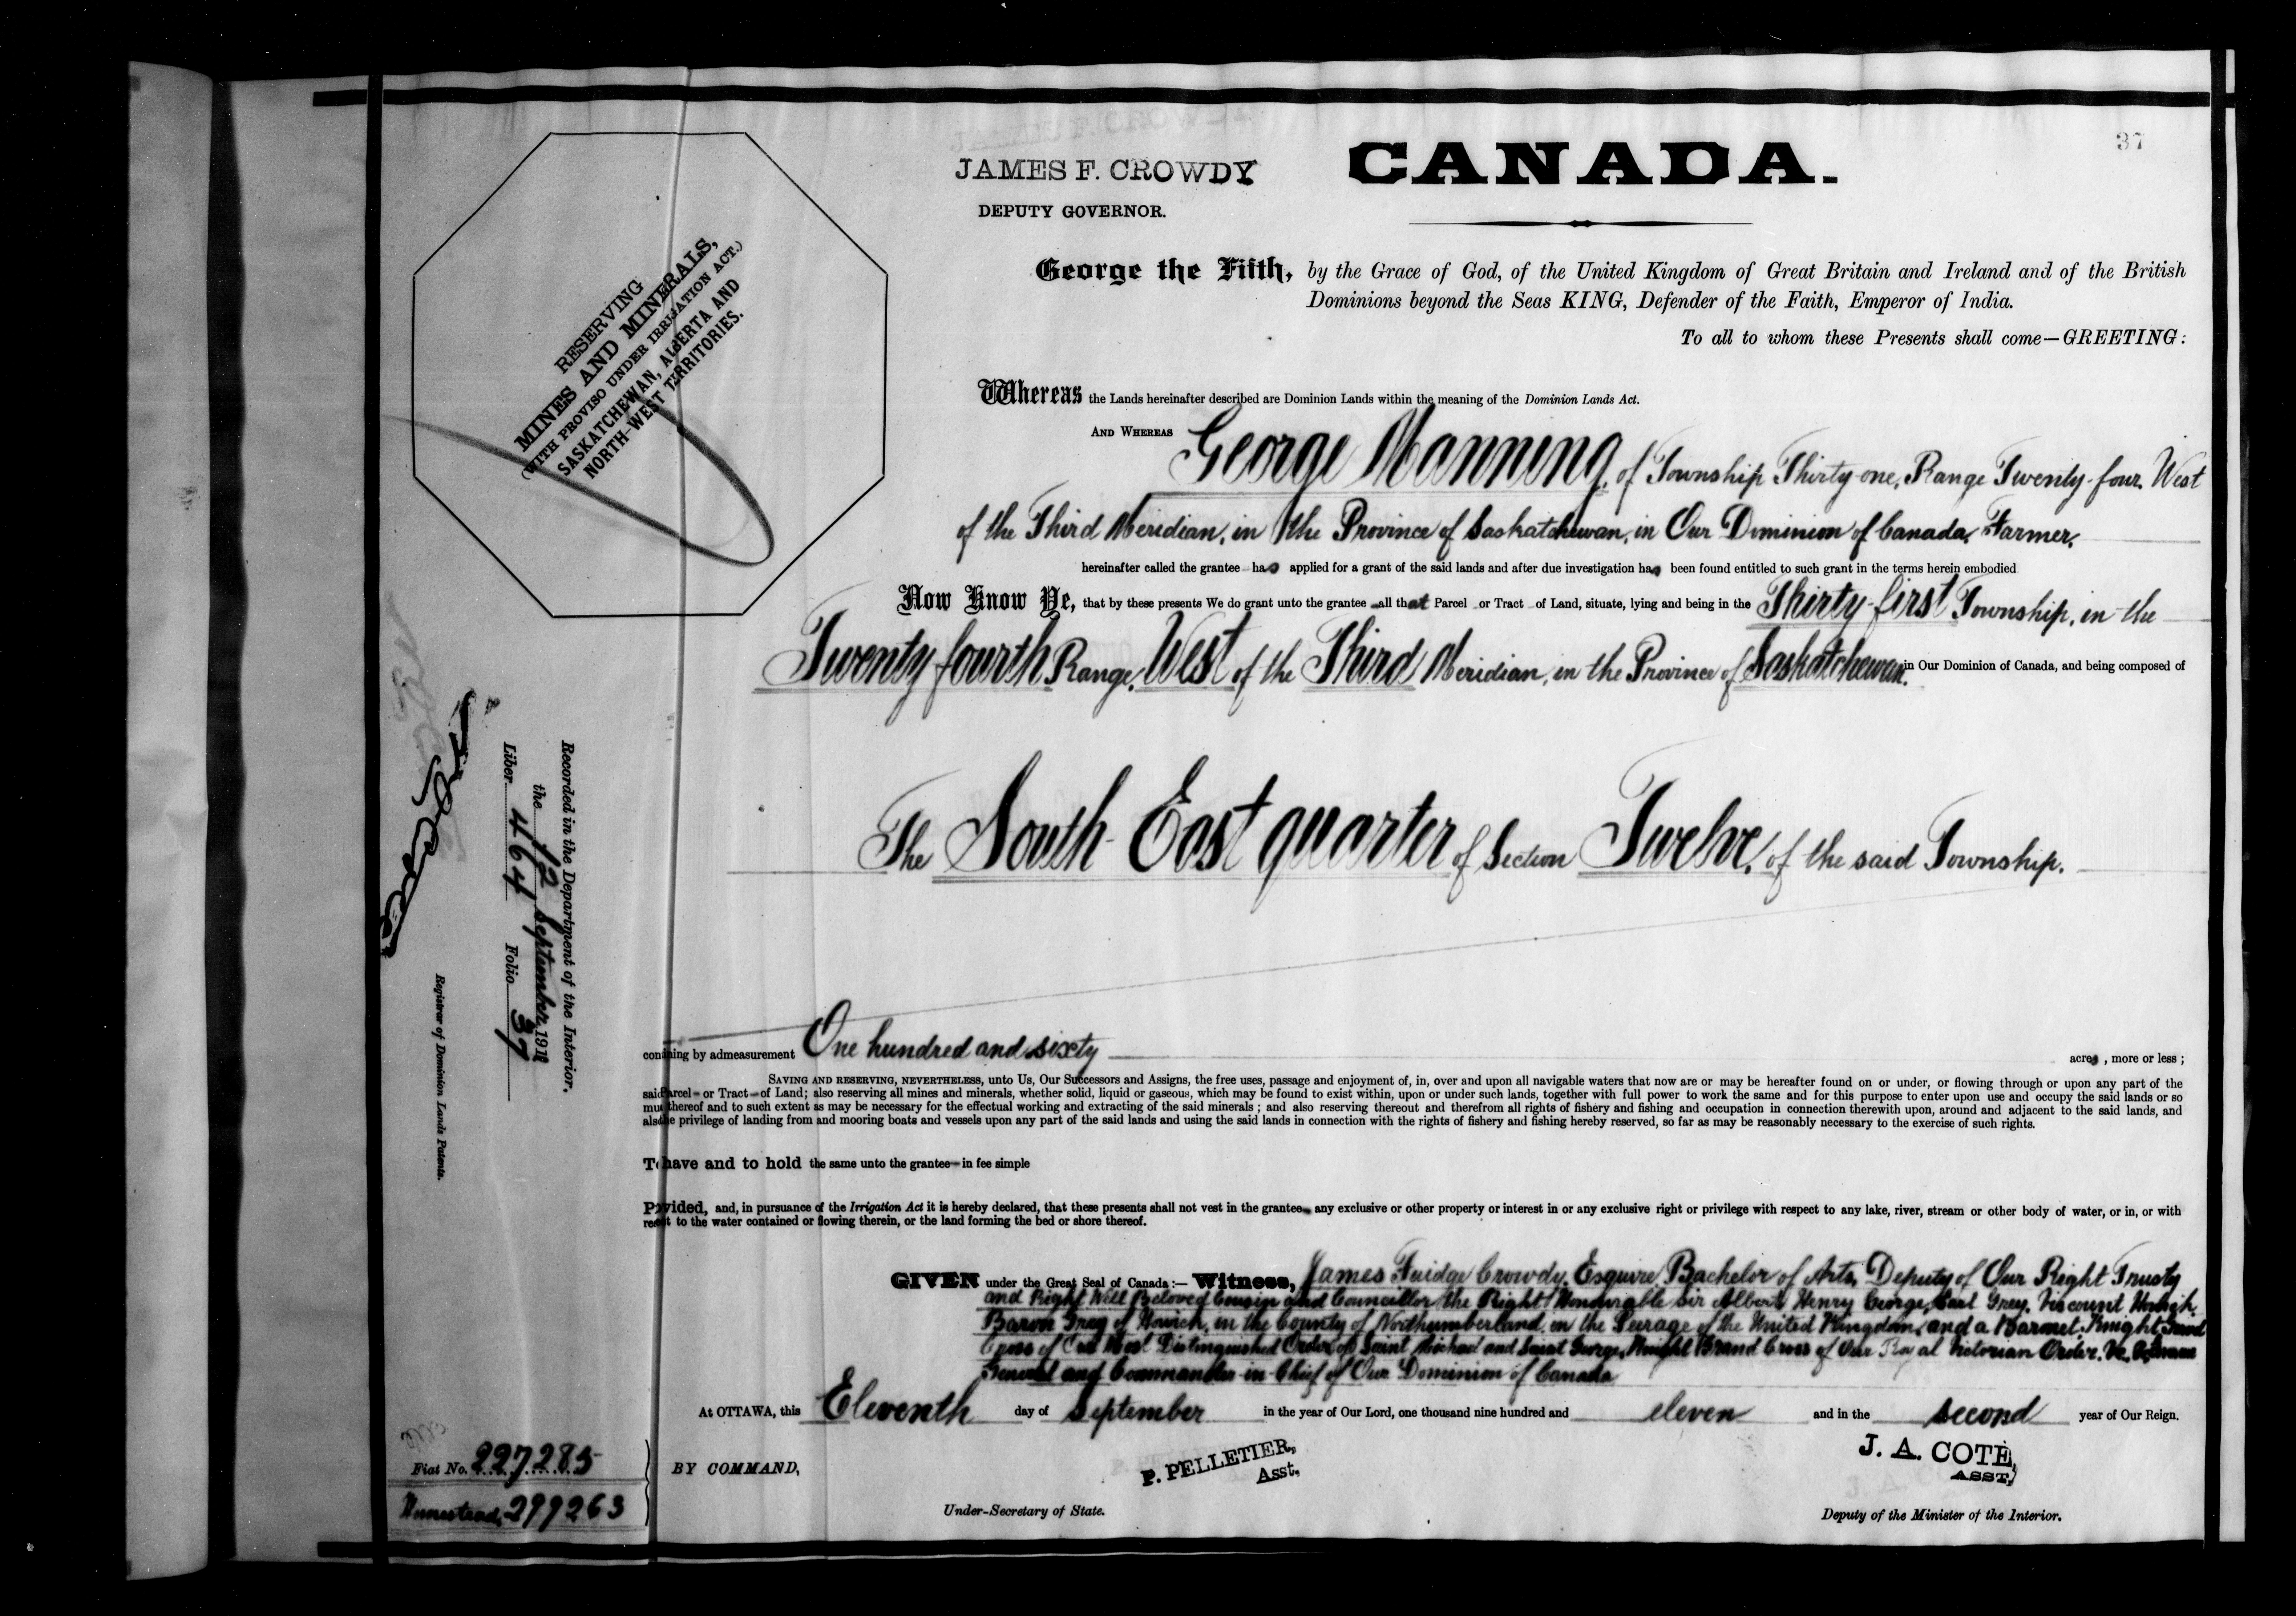 37
JAMES F. CROWDY
DEPUTY GOVERNOR.
CANADA.
RESERVING
MINES AND MINERALS,
(WITH PROVISO UNDER IRRIGATION ACT.)
SASKATCHEWAN, ALBERTA AND
NORTH-WEST TERRITORIES.
George the Fifth, by the Grace of God, of the United Kingdom of Great Britain and Ireland and of the British
Dominions beyond the Seas KING, Defender of the Faith, Emperor of India.
To all to whom these Presents shall come—GREETING:
Whereas the Lands hereinafter described are Dominion Lands within the meaning of the Dominion Lands Act.
AND WHEREAS George Manning, of Township Thirty-one, Range Twenty-four, West
of the Third Meridian, in the Province of Saskatchewan, in Our Dominion of Canada, Farmer,
hereinafter called the grantee has applied for a grant of the said lands and after due investigation has been found entitled to such grant in the terms herein embodied
Now Know Ye, that by these presents We do grant unto the grantee all that Parcel or Tract of Land, situate, lying and being in the Thirty-first Township, in the
Twenty fourth Range, West of the Third Meridian, in the Province of Saskatchewan, in Our Dominion of Canada, and being composed of
The South-East quarter of Section Twelve, of the said Township.
conning by admeasurement One hundred and sixty acres, more or less;
SAVING AND RESERVING, NEVERTHELESS, unto Us, Our Successors and Assigns, the free uses, passage and enjoyment of, in, over and upon all navigable waters that now are or may be hereafter found on or under, or flowing through or upon any part of the
said arcel or Tract of Land; also reserving all mines and minerals, whether solid, liquid or gaseous, which may be found to exist within, upon or under such lands, together with full power to work the same and for this purpose to enter upon use and occupy the said lands or so
mu thereof and to such extent as may be necessary for the effectual working and extracting of the said minerals; and also reserving thereout and therefrom all rights of fishery and fishing and occupation in connection therewith upon, around and adjacent to the said lands, and
also e privilege of landing from and mooring boats and vessels upon any part of the said lands and using the said lands in connection with the rights of fishery and fishing hereby reserved, so far as may be reasonably necessary to the exercise of such rights.
To have and to hold the same unto the grantee in fee simple
Provided, and, in pursuance of the Irrigation Act it is hereby declared, that these presents shall not vest in the grantee any exclusive or other property or interest in or any exclusive right or privilege with respect to any lake, river, stream or other body of water, or in, or with
reect to the water contained or flowing therein, or the land forming the bed or shore thereof.
GIVEN under the Great Seal of Canada:— Witness, James Fuidge Crowdy, Esquire, Bachelor of Arts, Deputy of Our Right Trusty
and Right Well Beloved Cousin and Councillor the Right Honourable Sir Albert Henry George, Earl Grey, Viscount Howick,
Baron Grey of Howick, in the County of Northumberland, in the Peerage of the United Kingdom, and a Baronet, Knight Grand
Cross of Our Most Distinguished Order of Saint Michael and Saint George, Knight Grand Cross of Our Royal Victorian Order,
General and Commander-in-Chief of Our Dominion of Canada
At OTTAWA, this Eleventh day of September in the year of Our Lord, one thousand nine hundred and eleven and in the second year of Our Reign.
BY COMMAND,
P. PELLETIER,
Asst.
Under-Secretary of State.
J. A. COTÉ,
ASST,
Deputy of the Minister of the Interior.
Recorded in the Department of the Interior,
the 12 September 1911
Liber 464 Folio 37
Registrar of Dominion Lands Patents.
Fiat No. 227285
Homestead, 299263